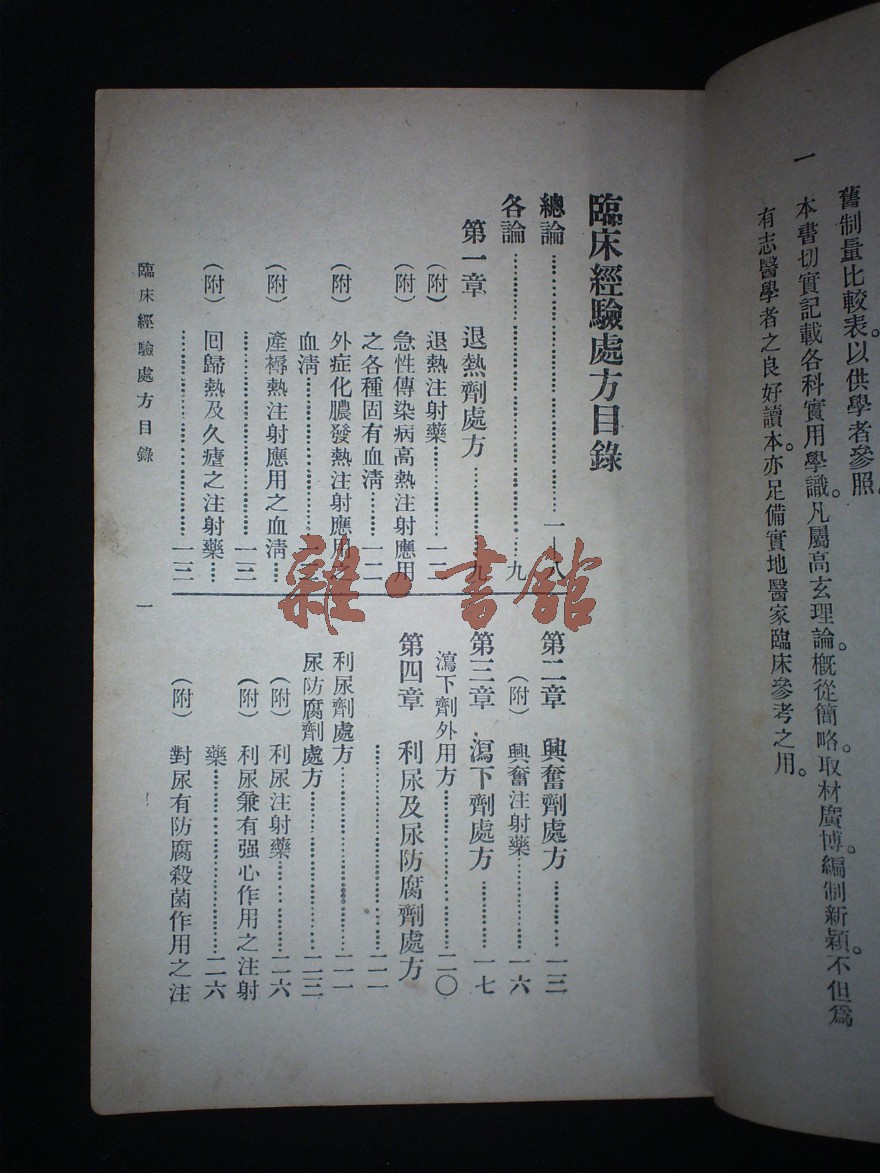 舊制量比較表。以供學者參照。
一　本書切實記載各科實用學識。凡屬高玄理論。槪從簡略。取材廣博。編制新穎。不但爲
有志醫學者之良好讀本。亦足備實地醫家臨床參考之用。
臨床經驗處方目錄
總論……一—八
各論……九
第一章　退熱劑處方……九
（附）退熱注射藥……一二
（附）急性傳染病高熱注射應用
之各種固有血清……一二
（附）外症化膿發熱注射應用之
血清……一二
（附）產褥熱注射應用之血清…
……一二
（附）回歸熱及久瘧之注射藥…
……一二
第二章　興奮劑處方……一三
（附）興奮注射藥……一六
第三章　瀉下劑處方……一七
瀉下劑外用方……二〇
第四章　利尿及尿防腐劑處方
……二一
利尿劑處方……二一
尿防腐劑處方……二三
（附）利尿注射藥……二六
（附）利尿兼有强心作用之注射
藥……二六
（附）對尿有防腐殺菌作用之注
臨床經驗處方目錄
一
雜·書館